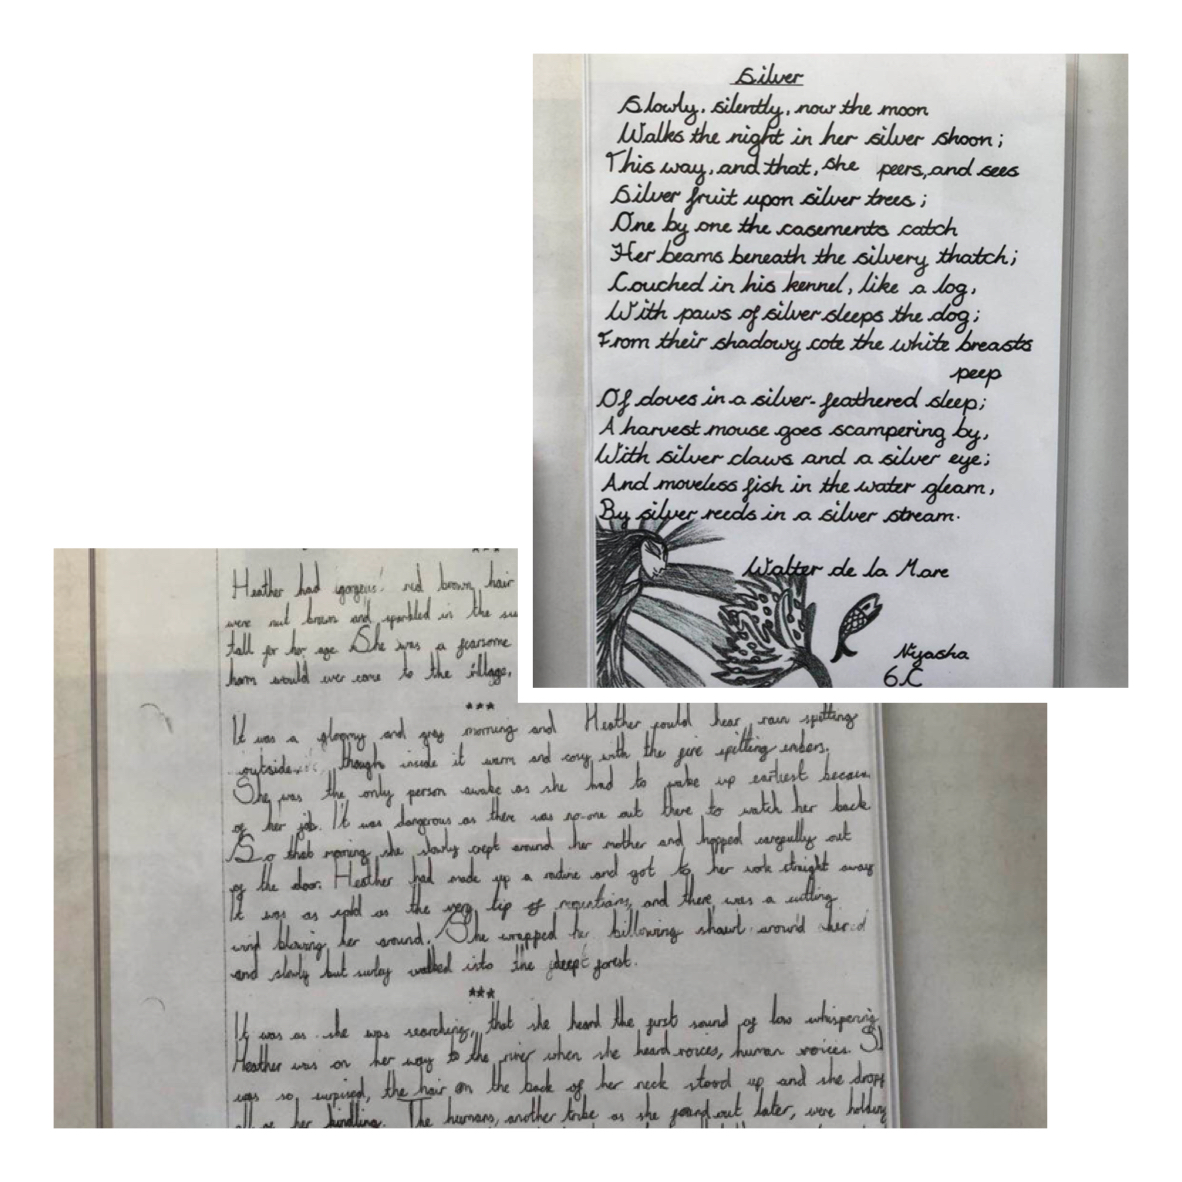 Silver
Slowly, silently, now the moon
Walks the night in her silver shoon;
This way, and that, she peers, and sees
Silver fruit upon silver trees;
One by one the casements catch
Her beams beneath the silvery thatch;
Couched in his kennel, like a log,
With paws of silver sleeps the dog;
From their shadowy cote the white breasts
peep
Of doves in a silver-feathered sleep;
A harvest mouse goes scampering by,
With silver claws and a silver eye;
And moveless fish in the water gleam,
By silver reeds in a silver stream.
Walter de la Mare
Nyasha
6.C
***
Heather had red brown hair
were nut brown and sparkled in the
tall for her age. She was a fearsome
harm would ever come to the village.
***
It was a gloomy and grey morning and Heather could hear rain spitting
outside though inside it warm and cosy with the fire spitting embers.
She was the only person awake as she had to wake up earliest
of her job. It was dangerous as there was no-one out there to watch her back
So that morning she slowly crept around her mother and hopped carefully out
of the door. Heather had made up a routine and got to her work straight away
It was as cold as the very tip of mountians, and there was a cutting
wind blowing her around. She wrapped her billowing shawl around her
and slowly but surley walked into the deep forest.
***
It was as she was searching, that she heard the first sound of low whispering
Heather was on her way to the river when she heard voices, human voices.
was so surpised, the hair on the back of her neck stood up and she
all of her kindling. The humans, another tribe as she found out later, were holding